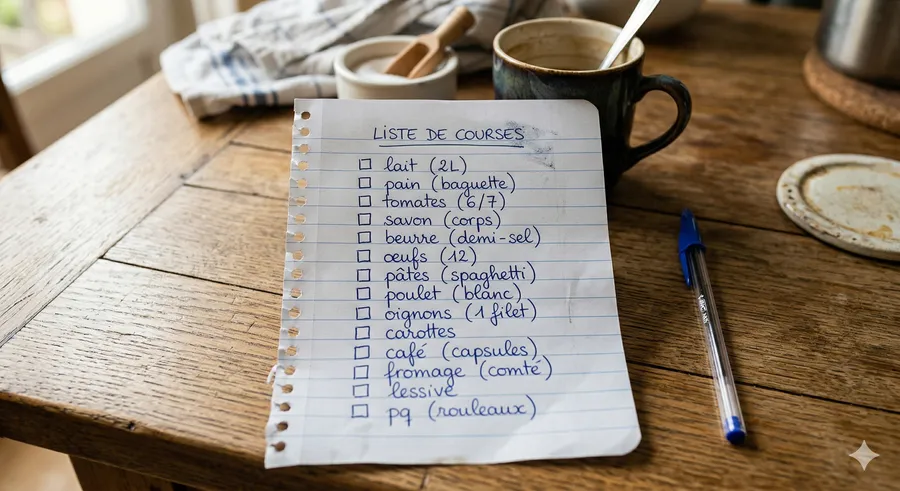 LISTE DE COURSES
☐ lait (2L)
☐ pain (baguette)
☐ tomates (6/7)
☐ savon (corps)
☐ beurre (demi-sel)
☐ œufs (12)
☐ pâtes (spaghetti)
☐ poulet (blanc)
☐ oignons (1 filet)
☐ carottes
☐ café (capsules)
☐ fromage (comté)
☐ lessive
☐ pq (rouleaux)